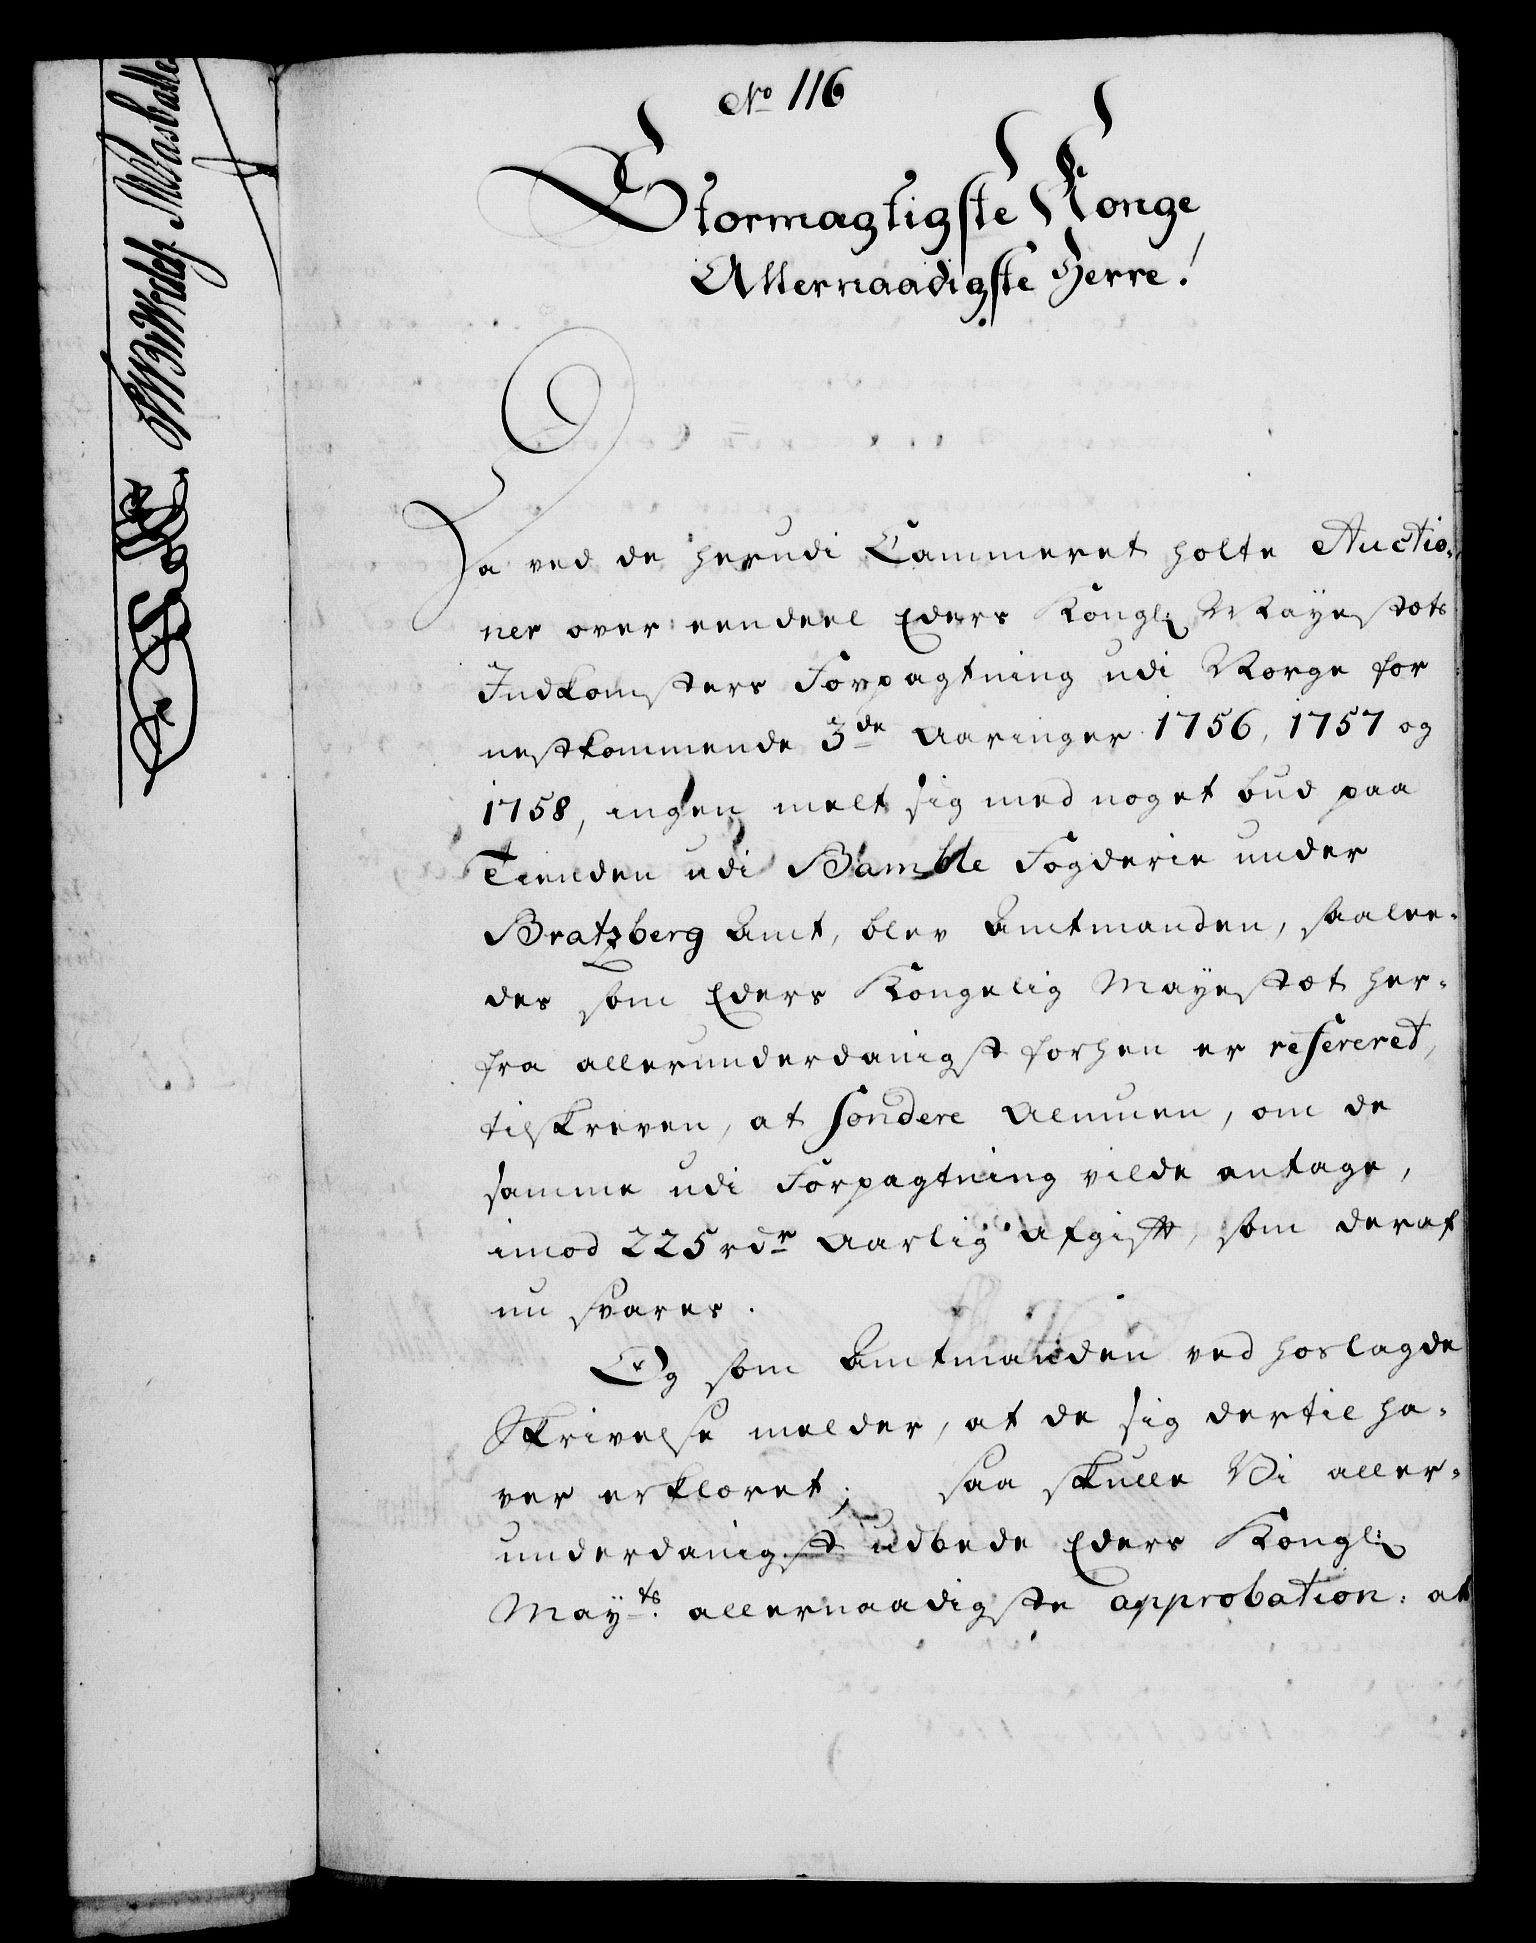 No 116
Stormægtigste Konge
Allernaadigste Herre!
Da ved de herudi Cammeret holte Auctio-
ner over eendeel Eders Kongl: Mayestæts
Indkomsters Forpagtning udi Norge for
nestkommende 3de Aaringer 1756, 1757 og
1758, ingen melt sig med noget bud paa
Tienden udi Bamble Fogderie under
Bratzberg Amt, blev Amtmanden, saalee-
des som Eders Kongelig Mayestæt her-
fra allerunderdanigst forhen er refereret,
tilskreven, at sondere Almuen, om de
samme udi Forpagtning vilde antage,
imod 225 rdr Aarlig Afgift, som deraf
nu svares.
Og som Amtmanden ved hoslagde
Skrivelse melder, at de sig dertil ha-
ver erklæret; saa skulle Vi aller-
underdanigst udbede Eders Kongl:
Mayts. allernaadigste approbation: at